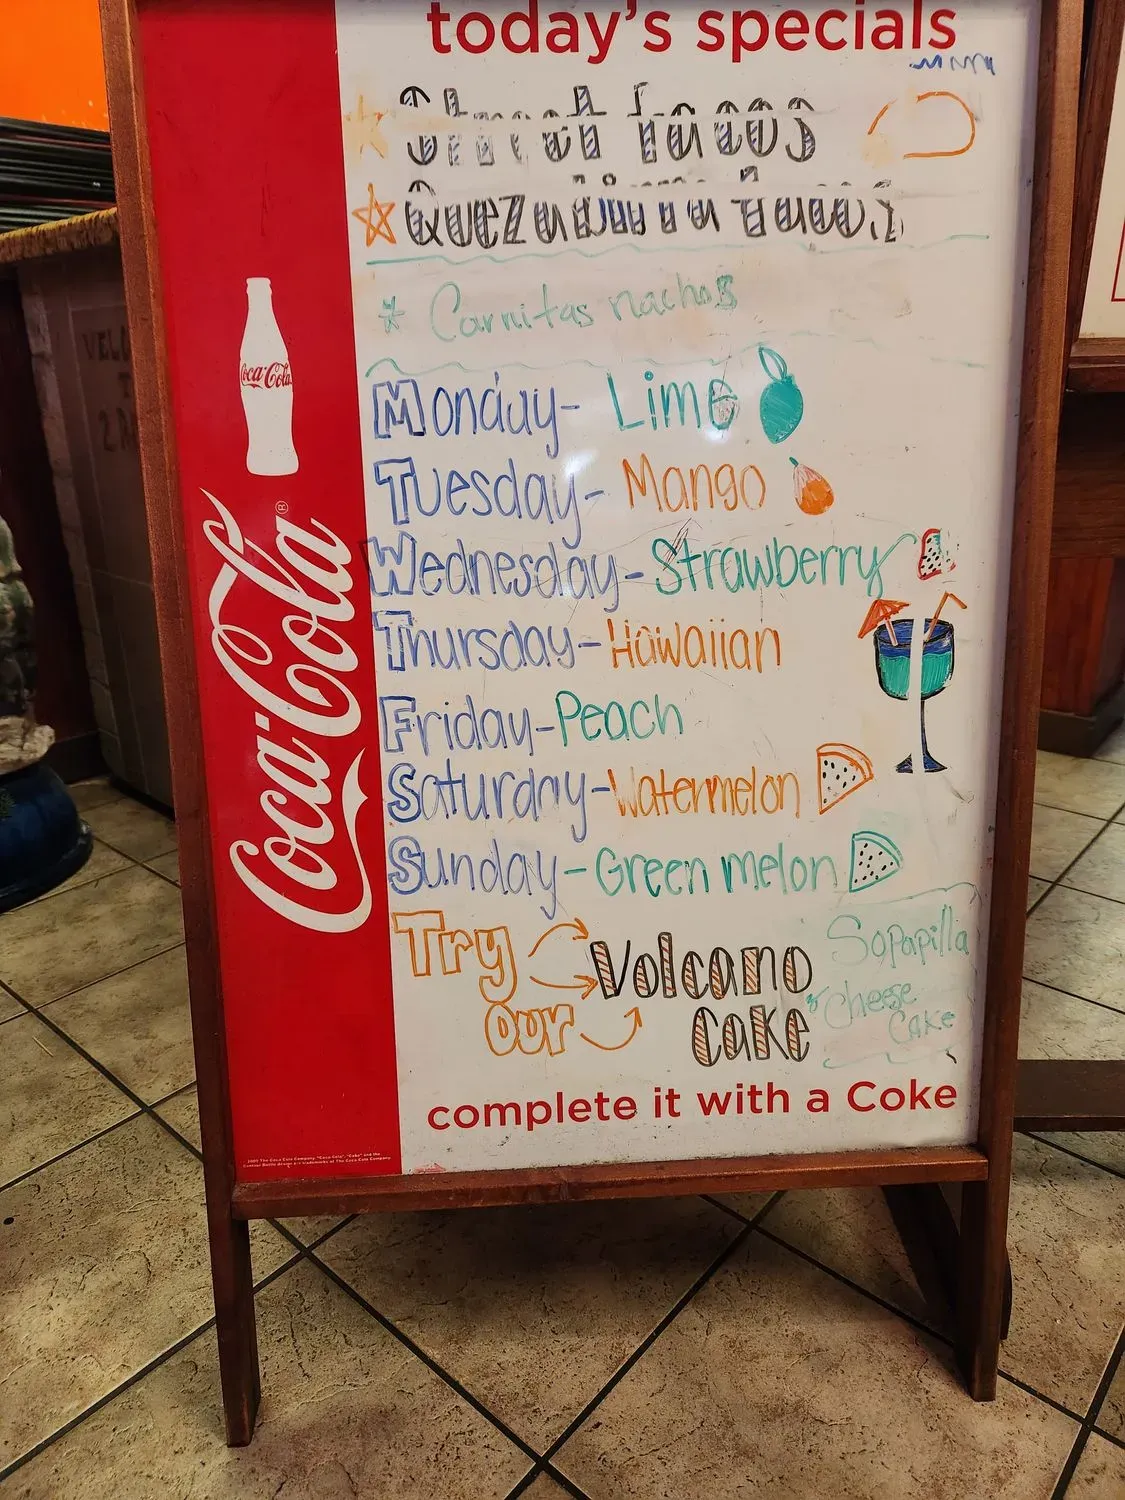 today's specials
Street Tacos
Quezabirria Tacos
* Carnitas nachos
Monday- Lime
Tuesday- Mango
Wednesday- Strawberry
Thursday- Hawaiian
Friday- Peach
Saturday- Watermelon
Sunday- Green melon
Try our Volcano Cake
Sopapilla
Cheese
Cake
complete it with a Coke
Coca-Cola
Coca-Cola®